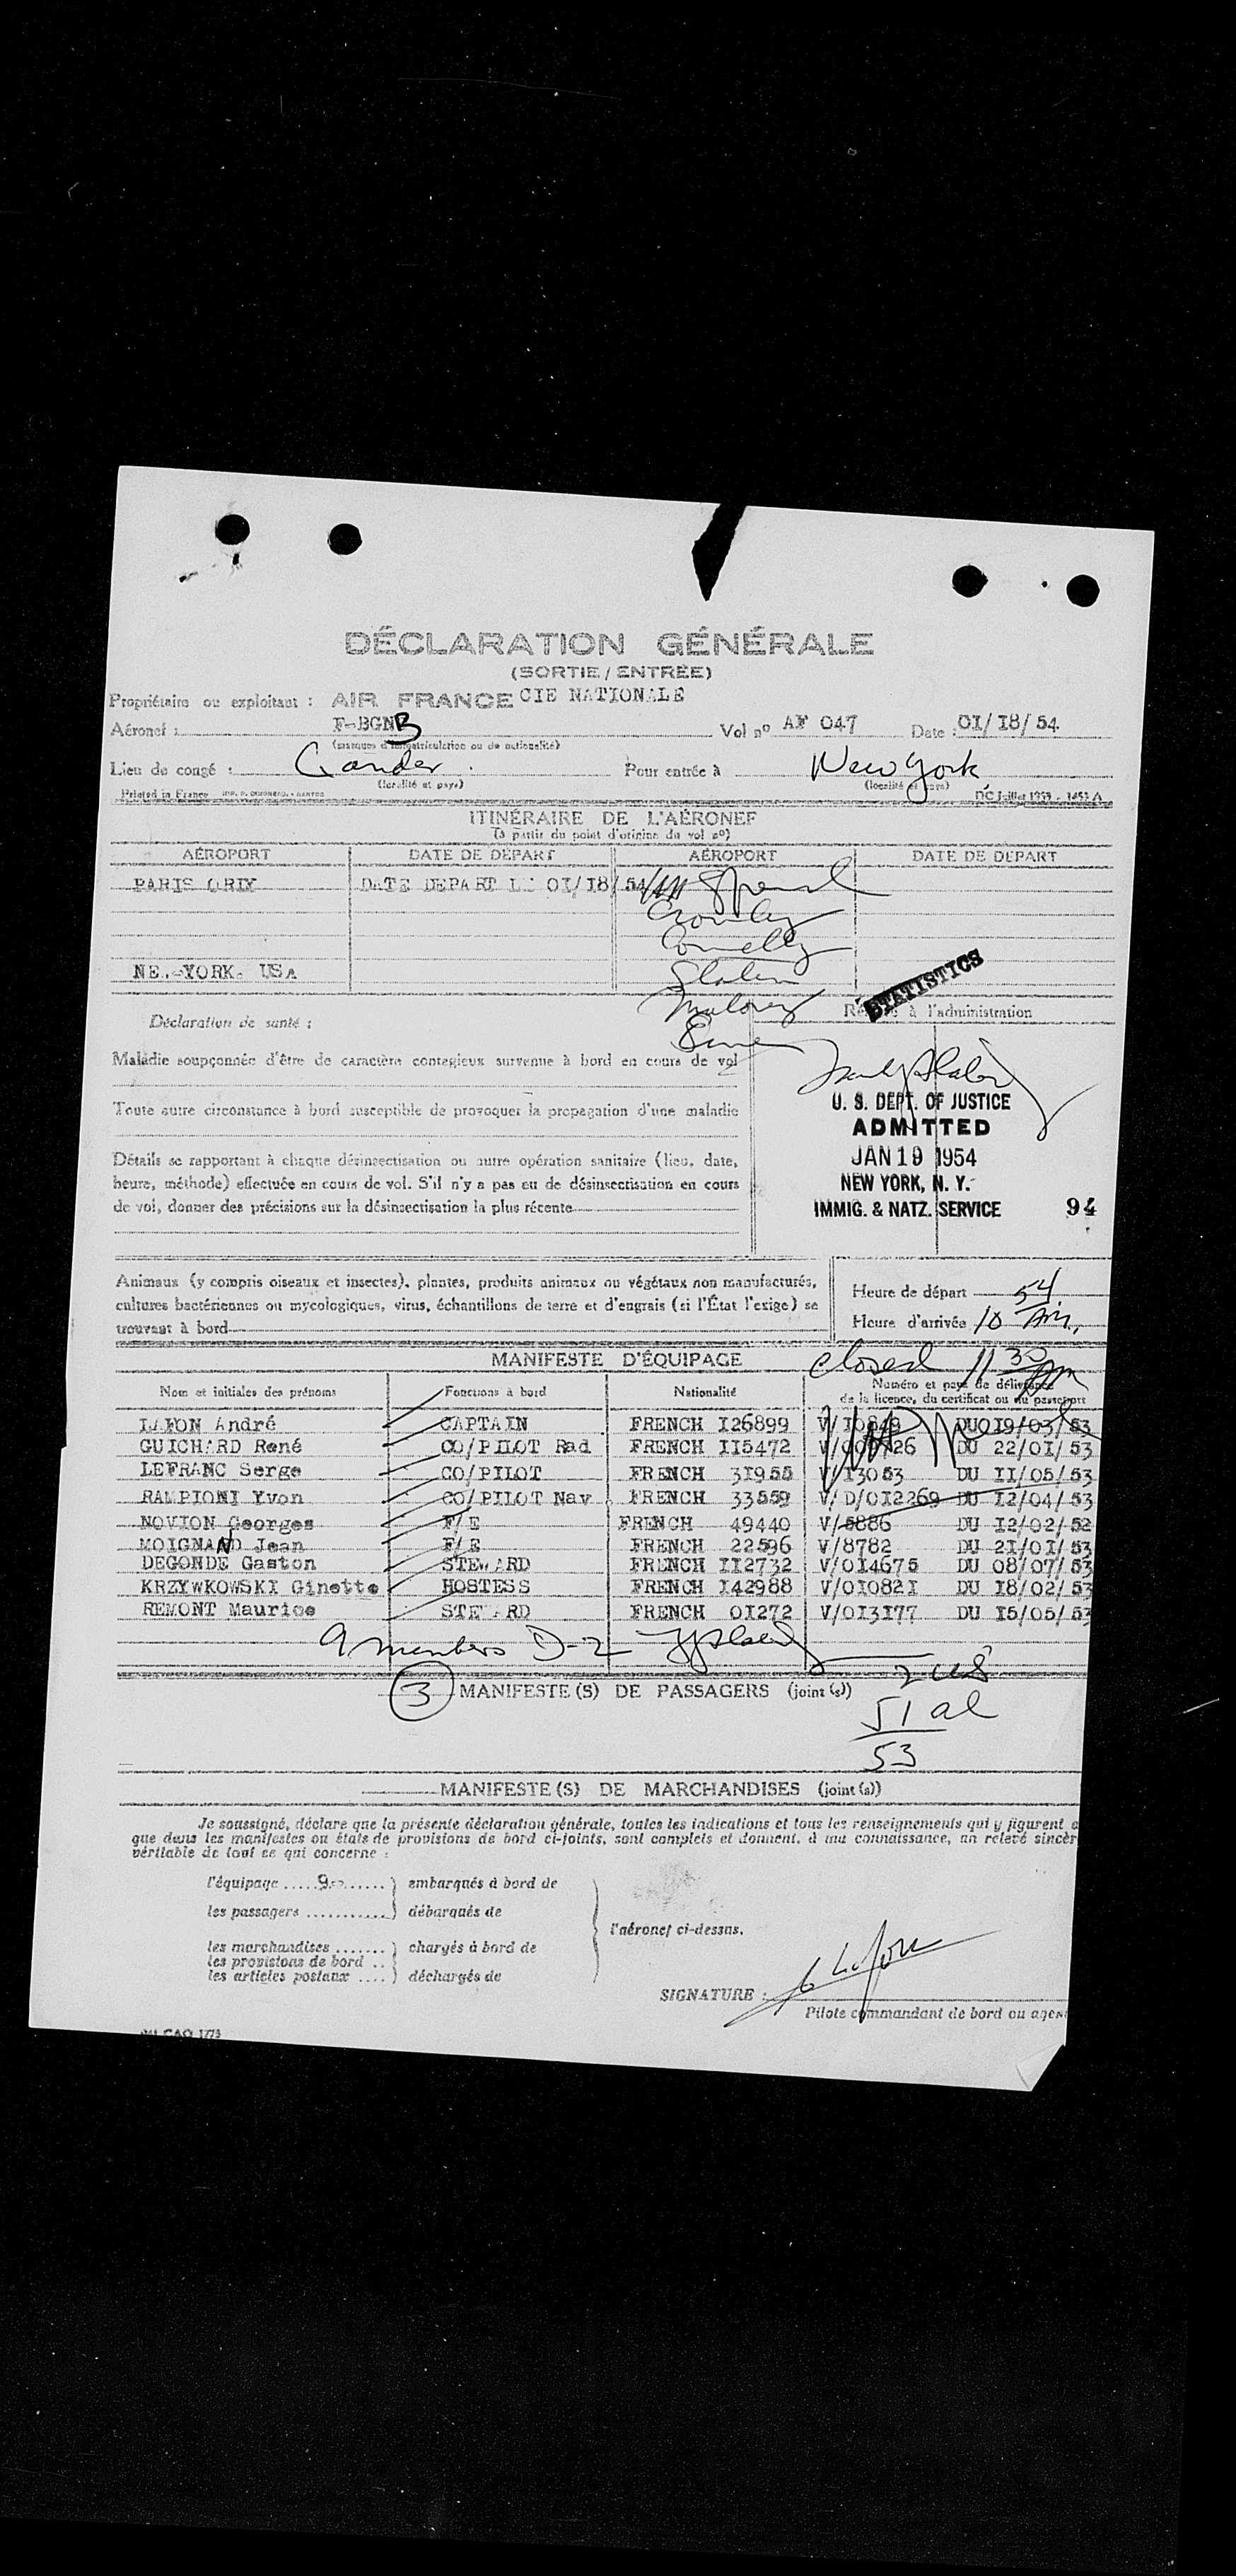 DÉCLARATION GÉNÉRALE
(SORTIE / ENTRÉE)
Propriétaire ou exploitant : AIR FRANCE CIE NATIONALE
Aéronef : F-BGNB Vol nº AF 047 Date : 01/18/54
(marques d'immatriculation ou de nationalité)
Lieu de congé : Gander Pour entrée à New York
(localité et pays) (localité et pays)
Printed in France
ITINÉRAIRE DE L'AÉRONEF
(à partir du point d'origine du vol nº)
AÉROPORT DATE DE DÉPART AÉROPORT DATE DE DÉPART
PARIS ORLY DATE DEPART LE 01/18/54
Crowley
Connelly
NE.-YORK. USA
Maloney
STATISTICS
Déclaration de santé : Réservé à l'administration
Maladie soupçonnée d'être de caractère contagieux survenue à bord en cours de vol
Toute autre circonstance à bord susceptible de provoquer la propagation d'une maladie
U. S. DEPT. OF JUSTICE
ADMITTED
JAN 19 1954
NEW YORK, N. Y.
IMMIG. & NATZ. SERVICE 94
Détails se rapportant à chaque désinsectisation ou autre opération sanitaire (lieu, date,
heure, méthode) effectuée en cours de vol. S'il n'y a pas eu de désinsectisation en cours
de vol, donner des précisions sur la désinsectisation la plus récente
Animaux (y compris oiseaux et insectes), plantes, produits animaux ou végétaux non manufacturés,
cultures bactériennes ou mycologiques, virus, échantillons de terre et d'engrais (si l'État l'exige) se
trouvant à bord
Heure de départ 54
Heure d'arrivée 10 Am.
MANIFESTE D'ÉQUIPAGE closed 11 30
Nom et initiales des prénoms Fonctions à bord Nationalité Numéro et pays de délivrance
de la licence, du certificat ou du passeport
LAFON André CAPTAIN FRENCH I26899 V/I0849 DU 019/03/53
GUICHARD René CO/PILOT Rad FRENCH II5472 DU 22/01/53
LEFRANC Serge CO/PILOT FRENCH 31955 V/I3053 DU II/05/53
RAMPIONI Yvon CO/PILOT Nav. FRENCH 33559 V/D/0I2269 DU I2/04/53
NOVION Georges F/E FRENCH 49440 V/5886 DU I2/02/52
MOIGNAND Jean F/E FRENCH 22596 V/8782 DU 21/01/53
DEGONDE Gaston STEWARD FRENCH II2732 V/0I4675 DU 08/07/53
KRZYWKOWSKI Ginette HOSTESS FRENCH I42988 V/0I082I DU I8/02/53
REMONT Maurice STEWARD FRENCH 0I272 V/0I3I77 DU I5/05/53
9 members D-2
2 US
3 MANIFESTE(S) DE PASSAGERS (joint (s))
51 al
53
MANIFESTE(S) DE MARCHANDISES (joint (s))
Je soussigné, déclare que la présente déclaration générale, toutes les indications et tous les renseignements qui y figurent
que dans les manifestes ou états de provisions de bord ci-joints, sont complets et donnent, à ma connaissance, un relevé sincèr
véritable de tout ce qui concerne :
l'équipage .....9....... ) embarqués à bord de
les passagers ............) débarqués de
l'aéronef ci-dessus.
les marchandises ....... ) chargés à bord de
les provisions de bord ..
les articles postaux .... ) déchargés de
SIGNATURE :
Pilote commandant de bord ou agen